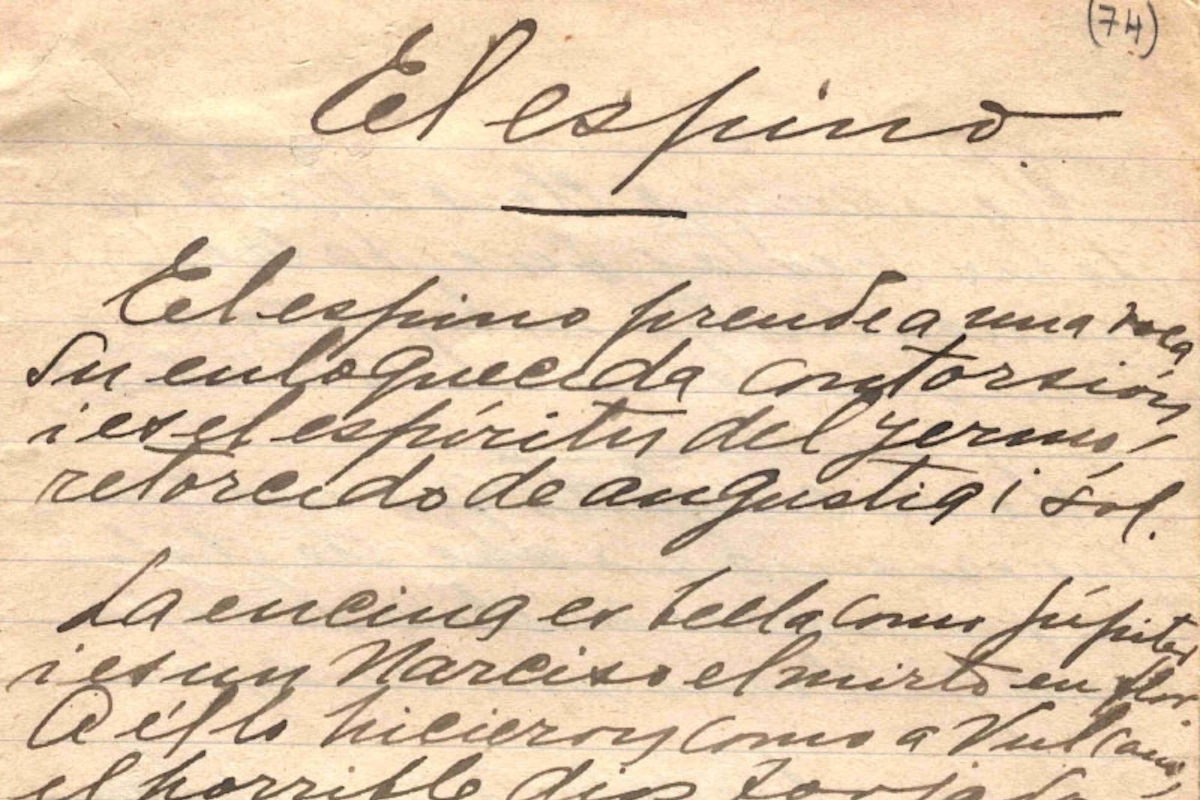 (74)
El espino.
El espino prende a una roca
su enloquecida contorsión,
i es el espíritu del yermo,
retorcido de angustia i sol.
La encina es bella como Júpiter
i es un Narciso el mirto en flor.
A él lo hicieron como a Vulcano,
el horrible dios forjador